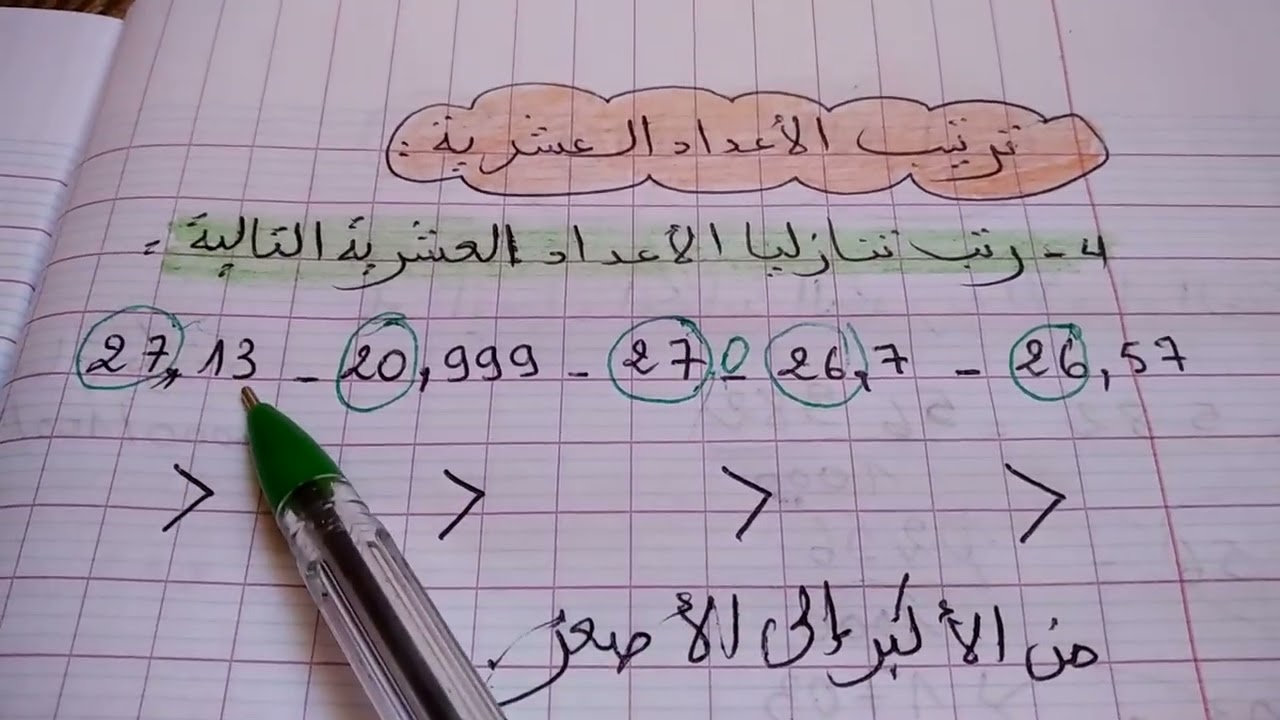 ترتيب الأعداد العشرية :
4 - رتب تنازليا الأعداد العشرية التالية :
27,13 - 20,999 - 27,0 - 26,7 - 26,57
> > > >
من الأكبر إلى الأصغر